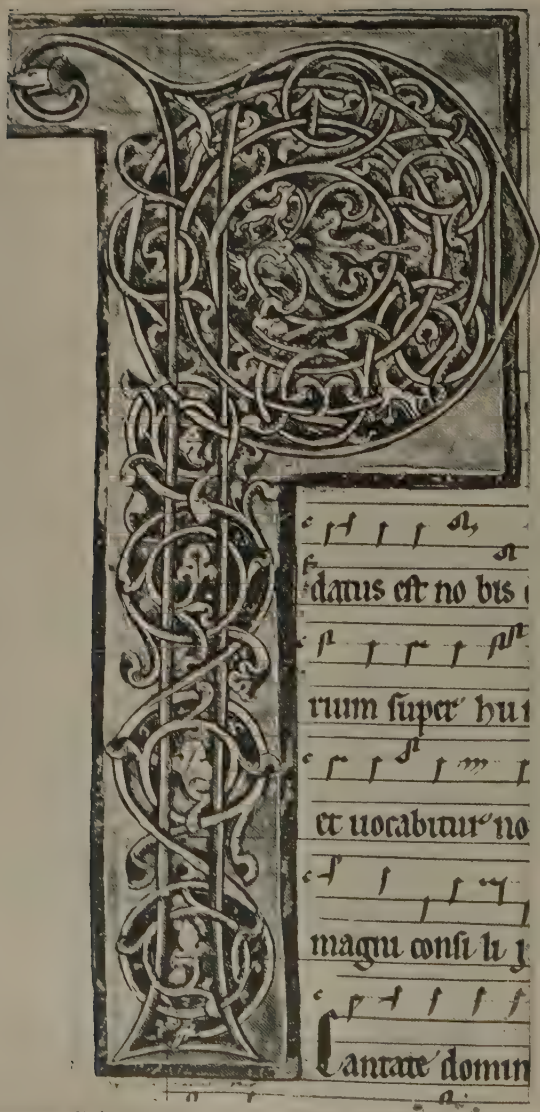 P
datus est no bis
rium super hu
et uocabitur no
magni consi li
Cantate domin